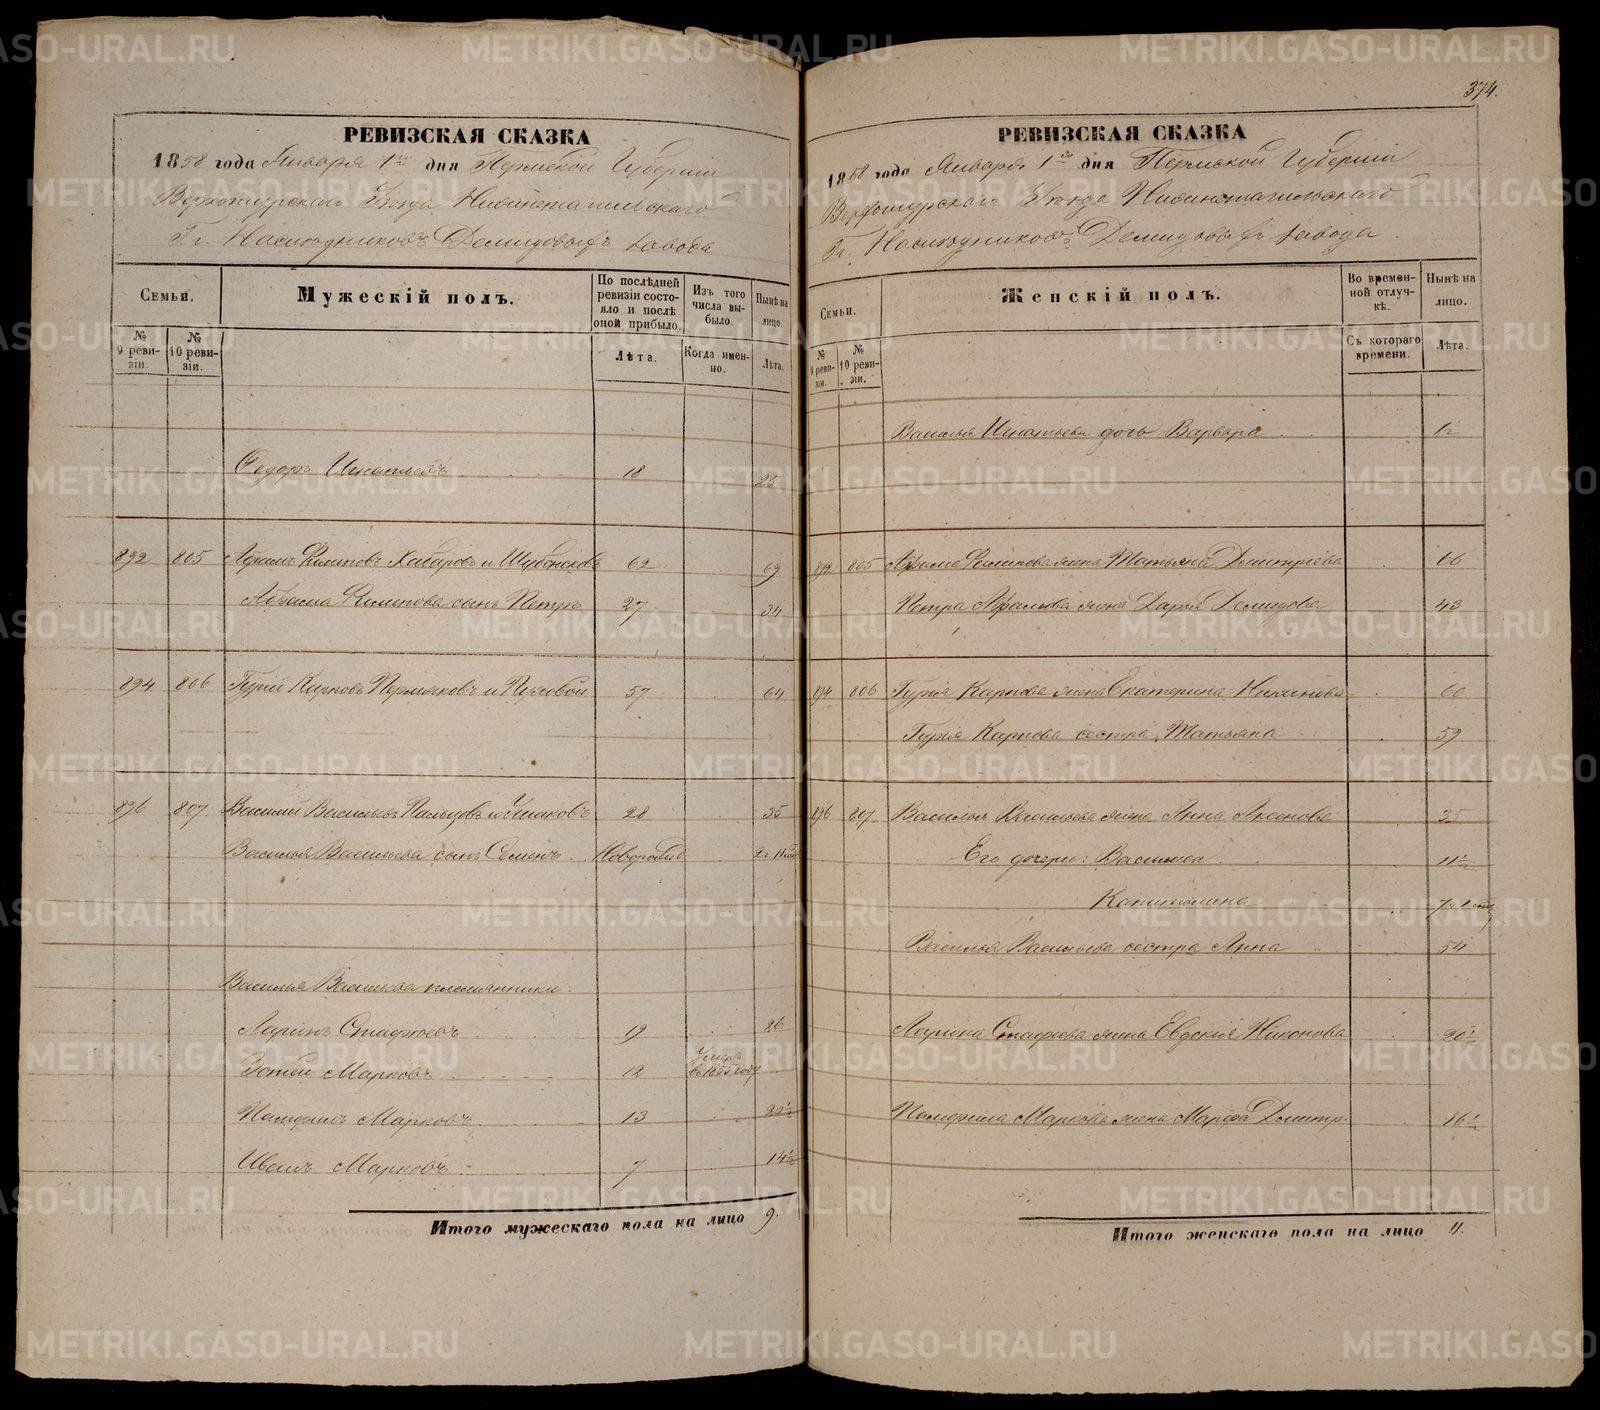 РЕВИЗСКАЯ СКАЗКА
1858 года Января 1го дня Пермской Губернiи
Верхотурскаго Уѣзда Нижнетагильскаго
Гг. Наслѣдниковъ Демидовыхъ завода
Семьи.
Мужескiй полъ.
По послѣдней ревизiи состояло и послѣ оной прибыло.
Изъ того числа выбыло.
Нынѣ на лицо.
№ 9 ревизiи.
№ 10 ревизiи.
Лѣта.
Когда именно.
Лѣта.
Федоръ Игнатьевъ 18 25
892 805 Абрамъ Филиповъ Хабаровъ и 62 69
Абрама Филипова сынъ Петръ 27 34
894 806 Гурiй Карповъ Пермяковъ и 57 64
896 807 Василiй Васильевъ Пальцовъ и Ушаковъ 28 35
Василья Васильева сынъ Семенъ Новорожд.
Василья Васильева племянники:
Ларiонъ 19 26
Марковъ 12 Умеръ въ 1855 году
Памфилъ Марковъ 13 20½
Иванъ Марковъ 7 14½
Итого мужескаго пола на лицо 9.
374.
РЕВИЗСКАЯ СКАЗКА
1858 года Января 1го дня Пермской Губернiи
Верхотурскаго Уѣзда Нижнетагильскаго
Гг. Наслѣдниковъ Демидовыхъ завода
Семьи.
Женскiй полъ.
Во временной отлучкѣ.
Нынѣ на лицо.
№ 9 ревизiи.
№ 10 ревизiи.
Съ котораго времени.
Лѣта.
Василья Игнатьева дочь Варвара
892 805 Абрама Филипова жена Татьяна Дмитрiева 66
Петра Абрамова жена Дарья Демидова 43
894 806 Гурiя Карпова жена Екатерина 60
Гурiя Карпова сестра Татьяна 59
896 807 Василья Васильева жена Анна Аксенова 35
Его дочери: Василиса 11½
Капитолина
Василья Васильева сестра Анна 54
Ларiона жена Евдокiя Никонова 20½
Памфила Маркова жена Марфа Дмитр. 16½
Итого женскаго пола на лицо 11.
METRIKI.GASO-URAL.RU